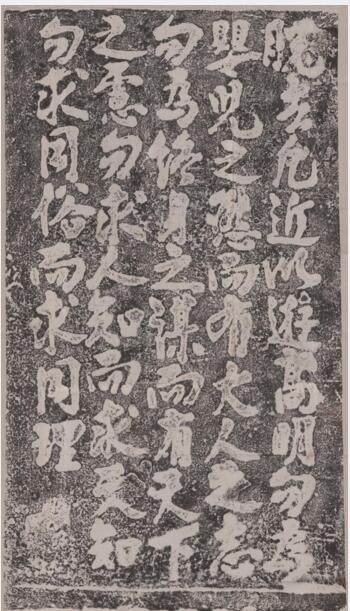 脱去凡近以遊高明勿為
嬰兒之態而有大人之志
勿為終身之謀而有天下
之慮勿求人知而求天知
勿求同俗而求同理